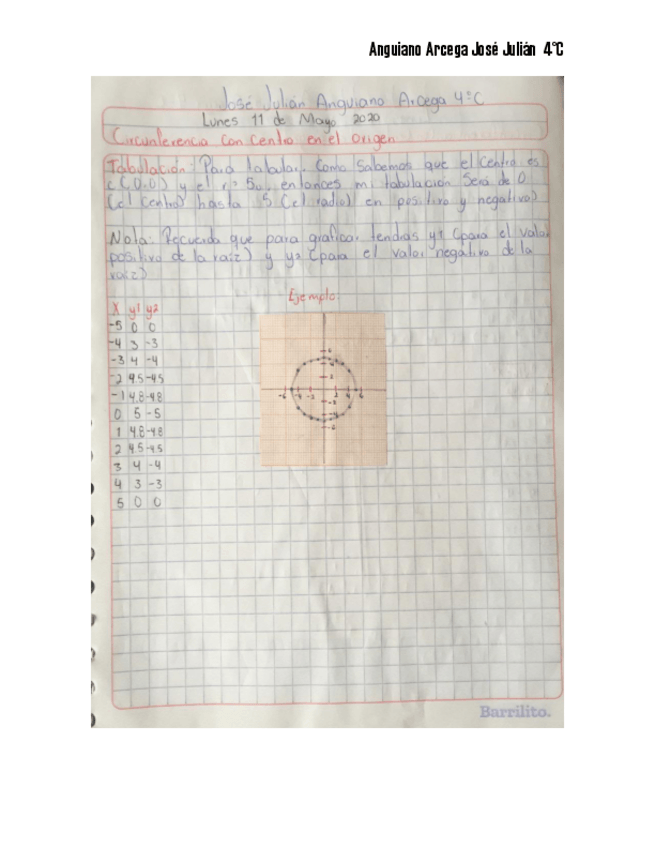 Anguiano Arcega José Julián 4°C
José Julián Anguiano Arcega 4°C
Lunes 11 de Mayo 2020
Circunferencia con Centro en el Origen
Tabulación: Para tabular, Como Sabemos que el Centro es
C(0,0) y el r= 5u, entonces mi tabulación Será de 0
(el Centro) hasta 5 (el radio) en positivo y negativo)
Nota: Recuerda que para graficar tendrás y1 (para el valor
positivo de la raíz) y y2 (para el valor negativo de la
raíz)
Ejemplo:
X y1 y2
-5 0 0
-4 3 -3
-3 4 -4
-2 4.5 -4.5
-1 4.8 -4.8
0 5 -5
1 4.8 -4.8
2 4.5 -4.5
3 4 -4
4 3 -3
5 0 0
Barrilito.